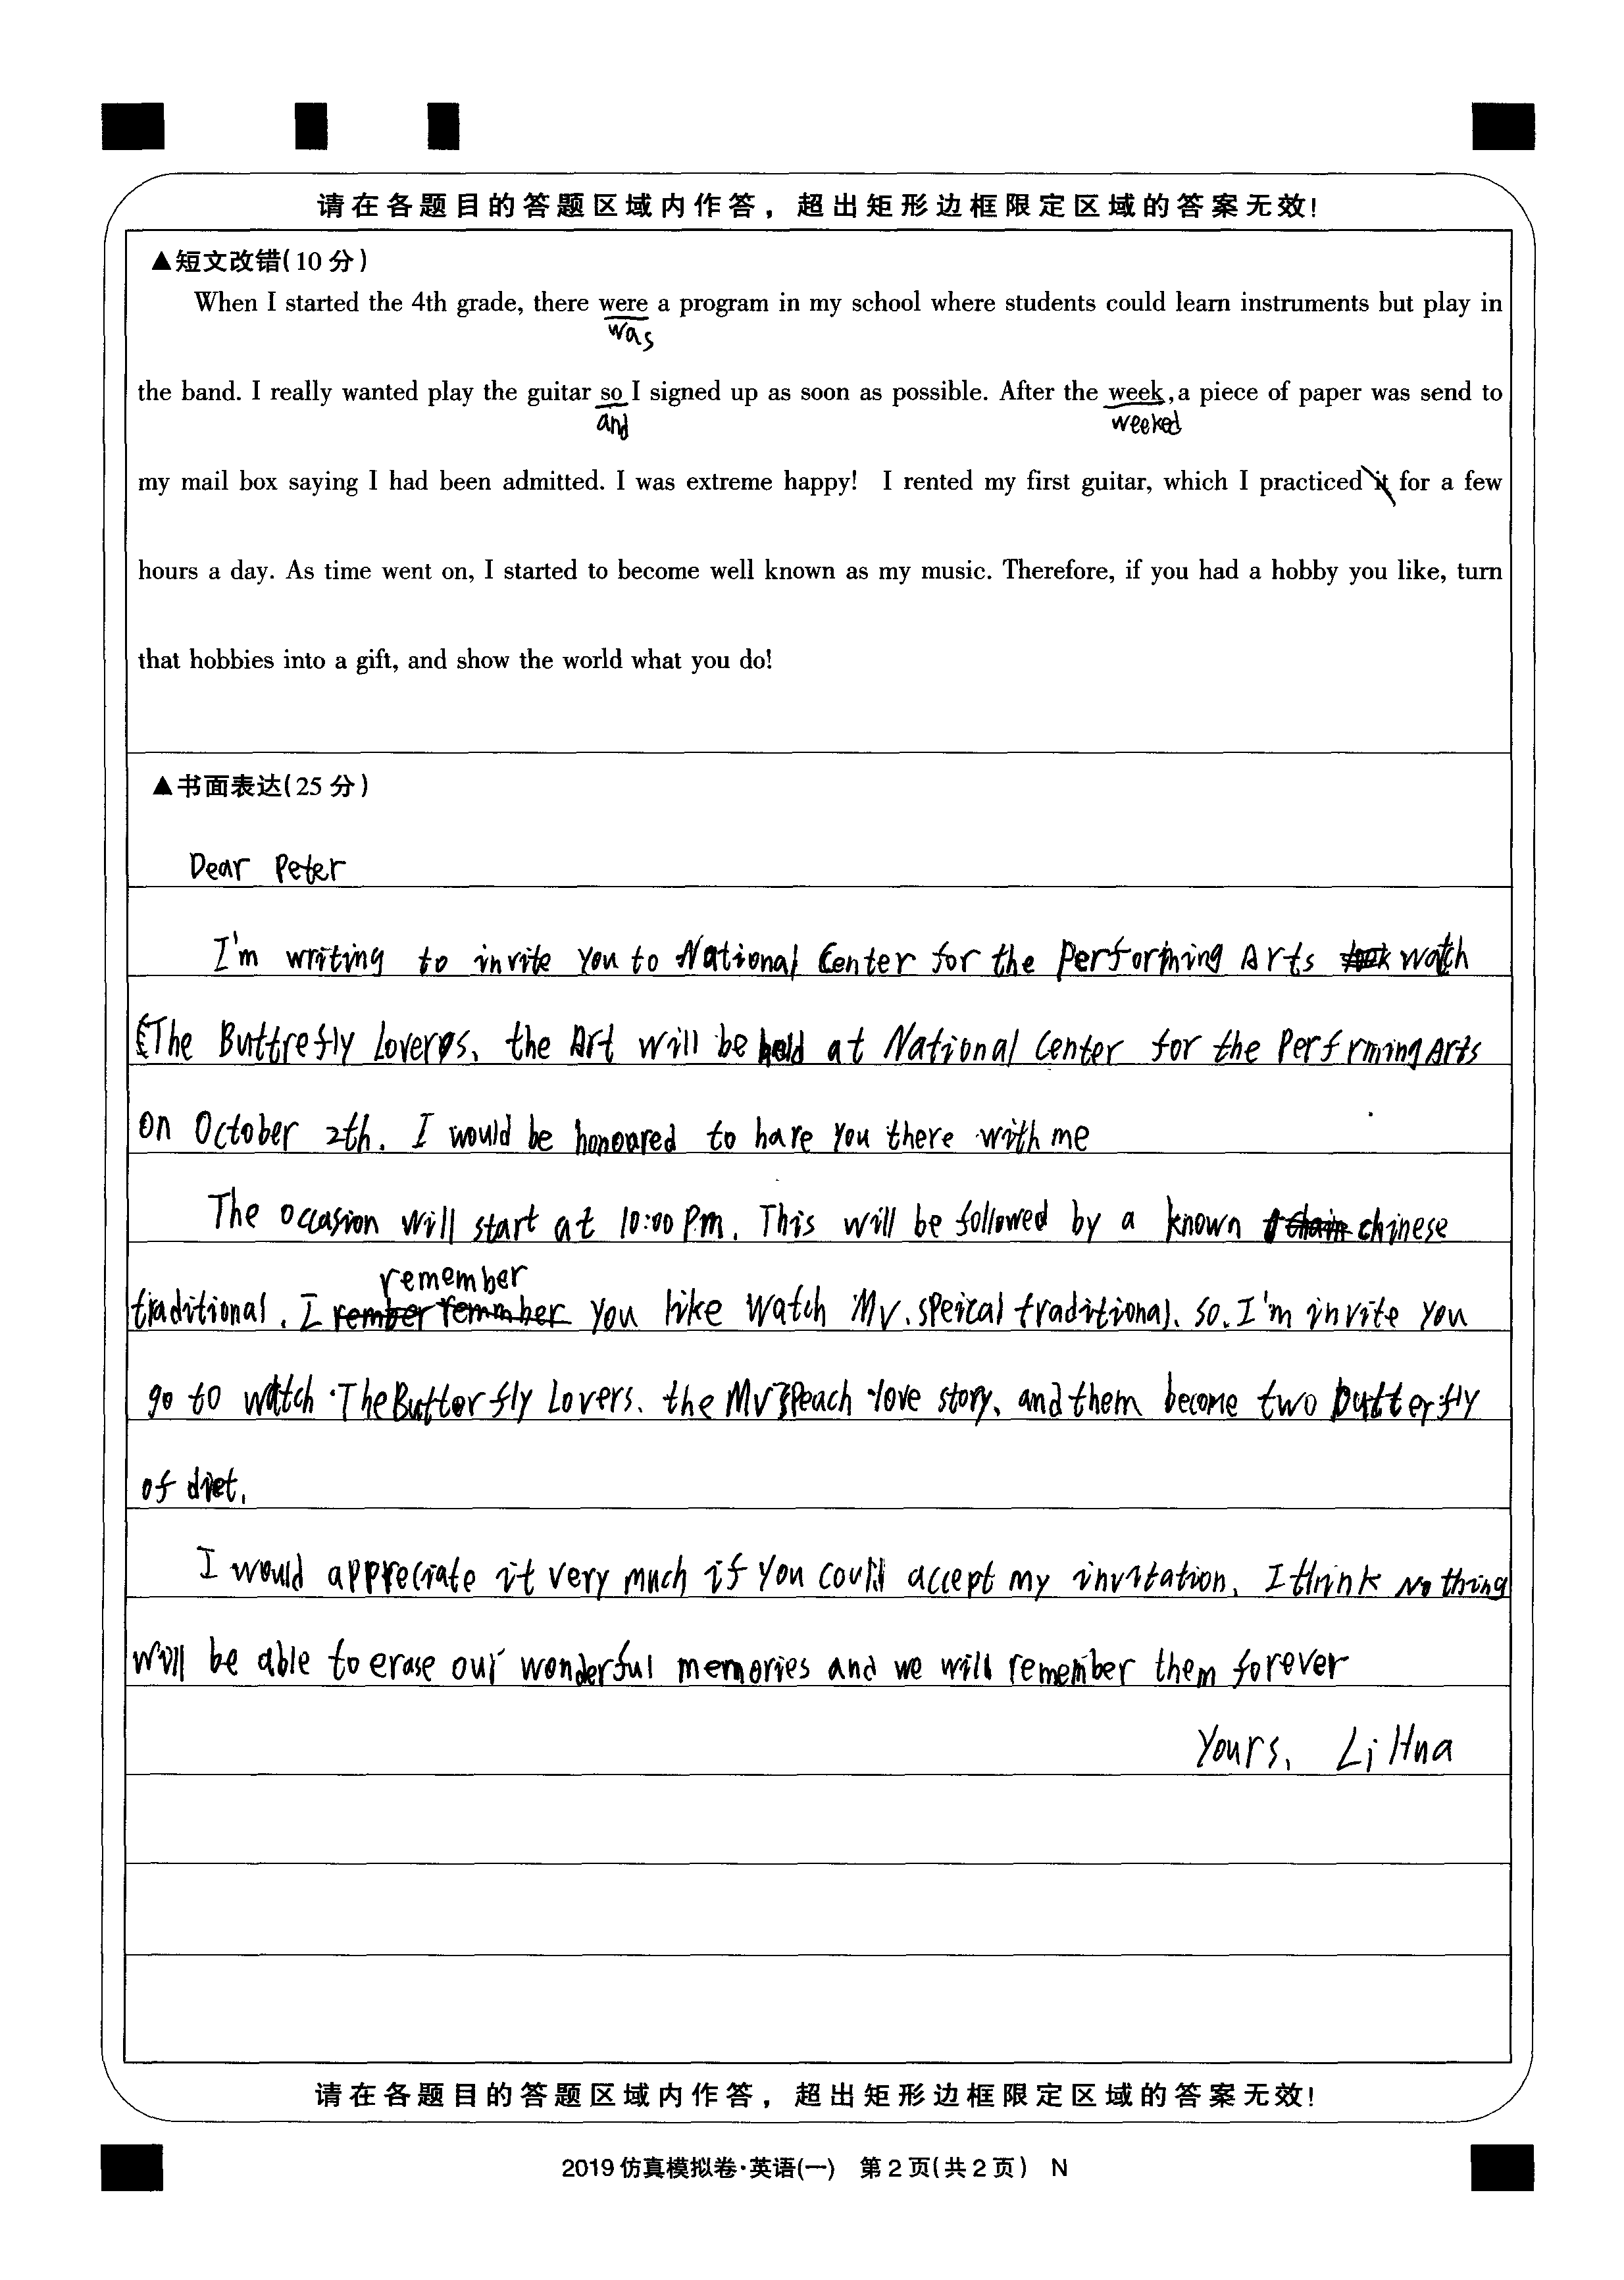 请在各题目的答题区域内作答，超出矩形边框限定区域的答案无效！
▲短文改错(10分)
When I started the 4th grade, there were a program in my school where students could learn instruments but play in
was
the band. I really wanted play the guitar so I signed up as soon as possible. After the week, a piece of paper was send to
and weeked
my mail box saying I had been admitted. I was extreme happy! I rented my first guitar, which I practiced it for a few
hours a day. As time went on, I started to become well known as my music. Therefore, if you had a hobby you like, turn
that hobbies into a gift, and show the world what you do!
▲书面表达(25分)
Dear Peter
I'm writing to invite you to National Center for the Performing Arts watch
The Buttrefly Lovers, the Art will be held at National Center for the Perfrming Arts
on October 2th. I would be honoured to have you there with me
The occasion will start at 10:00 P.m. This will be followed by a known chinese
remember
traditional. I you like watch MV. speical traditional. so. I'm invite you
go to watch The Butterfly Lovers. the MV Speach love story, and them become two butterfly
of diet.
I would appreciate it very much if you could accept my invitation. I think No thing
will be able to erase our wonderful memories and we will remember them forever
Yours, Li Hua
请在各题目的答题区域内作答，超出矩形边框限定区域的答案无效！
2019仿真模拟卷·英语(一) 第2页(共2页) N